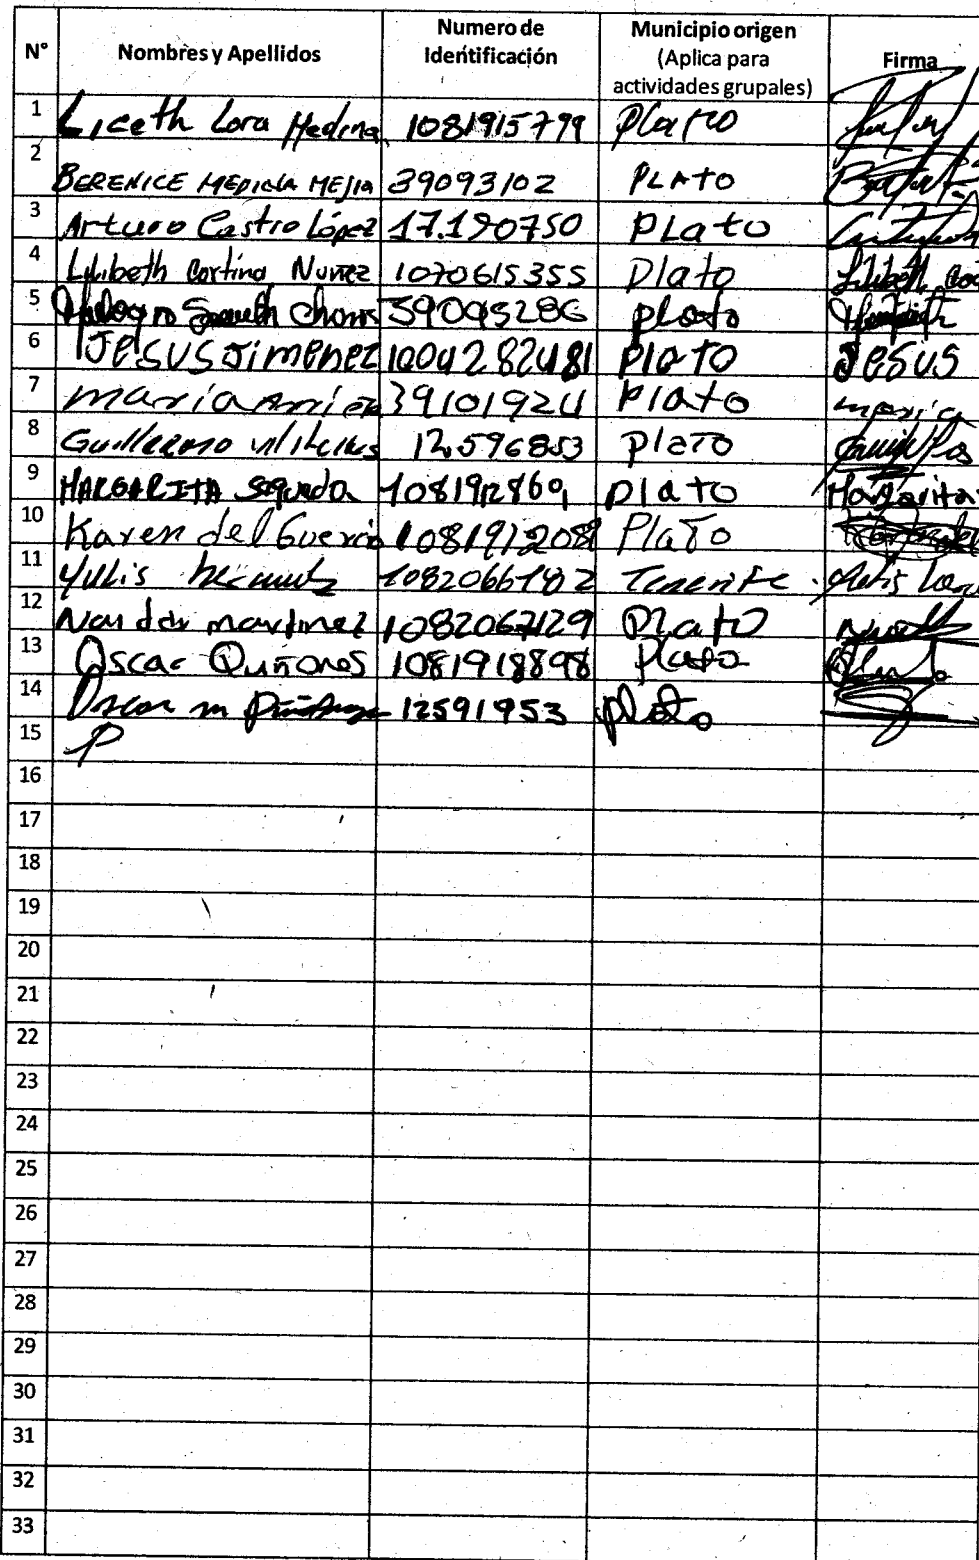 N° Nombres y Apellidos Numero de Identificación Municipio origen (Aplica para actividades grupales) Firma
1 Liceth Lora Medina 1081915799 Plato
2 BERENICE MEDINA MEJIA 39093102 PLATO
3 Arturo Castro López 17.190750 PLato
4 Lilibeth Cortina Nuñez 1070615355 Plato Lilibeth
5 39095286 plato
6 JESUS JimENEZ 1004282481 Plato JESUS
7 maria 39101924 Plato maria
8 Guillermo 12.596853 plato
9 MARGARITA 1081912869 plato Margarita
10 Karen del Guercio 1081912089 Plato
11 Yulis 1082066182 Tenerife
12 martinez 1082067129 Plato
13 Oscar Quiñones 1081918898 Plato
14 Oscar m 12591953 plato
15
16
17
18
19
20
21
22
23
24
25
26
27
28
29
30
31
32
33